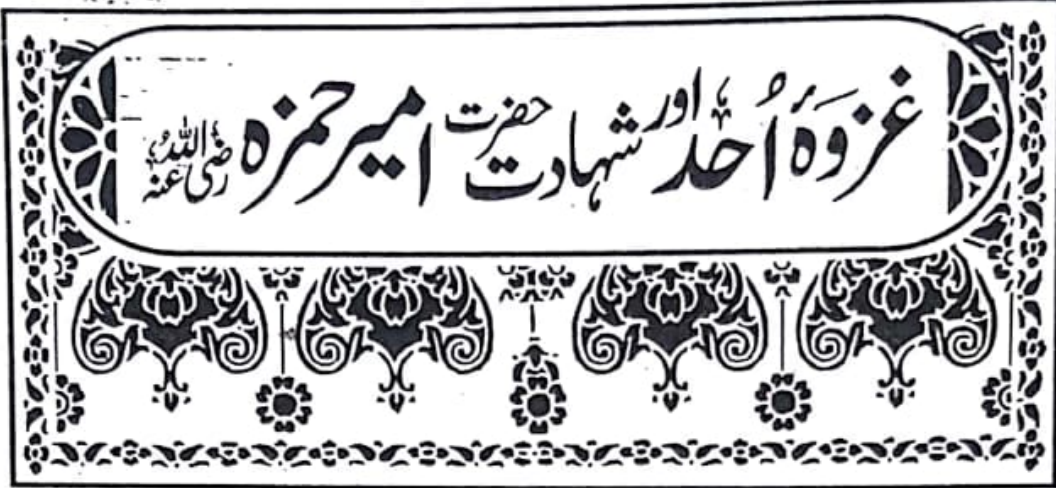 غزوۂ اُحد اور شہادت حضرت امیر حمزہ رضی اللہ عنہ